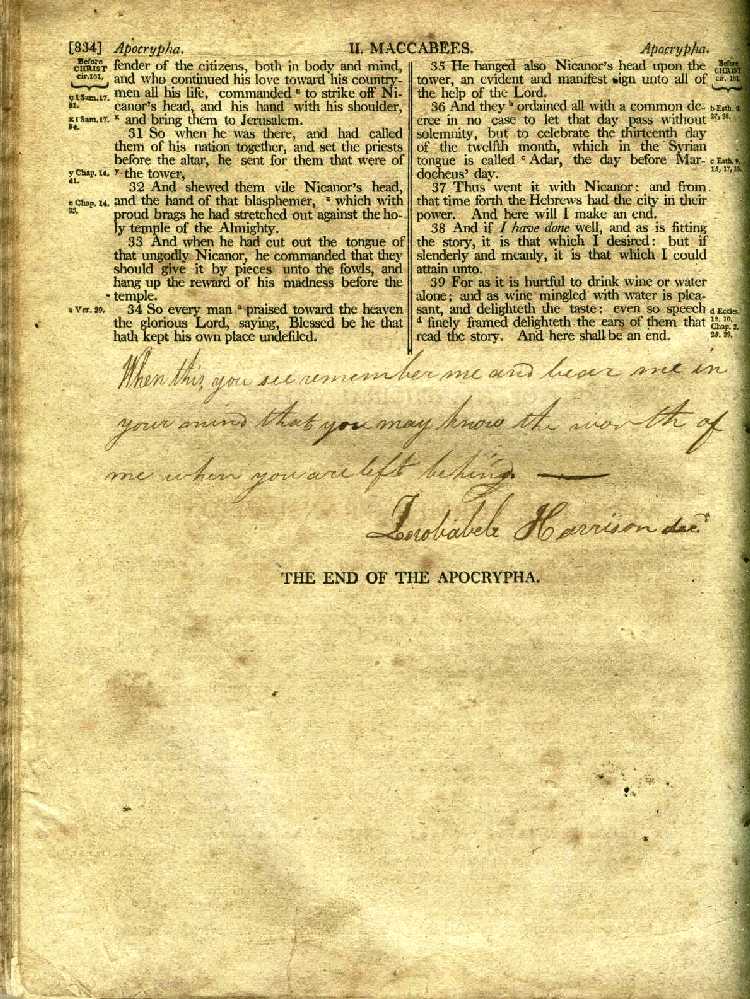 [834] Apocrypha. II. MACCABEES. Apocrypha.
Before
CHRIST
cir. 161.
fender of the citizens, both in body and mind,
and who continued his love toward his country-
men all his life, commanded to strike off Ni-
canor's head, and his hand with his shoulder,
x and bring them to Jerusalem.
31 So when he was there, and had called
them of his nation together, and set the priests
before the altar, he sent for them that were of
y the tower,
32 And shewed them vile Nicanor's head,
and the hand of that blasphemer, z which with
proud brags he had stretched out against the ho-
ly temple of the Almighty.
33 And when he had cut out the tongue of
that ungodly Nicanor, he commanded that they
should give it by pieces unto the fowls, and
hang up the reward of his madness before the
temple.
34 So every man a praised toward the heaven
the glorious Lord, saying, Blessed be he that
hath kept his own place undefiled.
1 Sam. 17.
x 1 Sam. 17.
54.
y Chap. 14.
41.
z Chap. 14.
33.
a Ver. 29.
35 He hanged also Nicanor's head upon the
tower, an evident and manifest sign unto all of
the help of the Lord.
36 And they b ordained all with a common de-
cree in no case to let that day pass without
solemnity, but to celebrate the thirteenth day
of the twelfth month, which in the Syrian
tongue is called c Adar, the day before Mar-
docheus' day.
37 Thus went it with Nicanor: and from
that time forth the Hebrews had the city in their
power. And here will I make an end.
38 And if I have done well, and as is fitting
the story, it is that which I desired: but if
slenderly and meanly, it is that which I could
attain unto.
39 For as it is hurtful to drink wine or water
alone; and as wine mingled with water is plea-
sant, and delighteth the taste: even so speech
d finely framed delighteth the ears of them that
read the story. And here shall be an end.
Before
CHRIST
cir. 161.
b Esth. 9.
27, 28.
c Esth. 9.
d Eccles.
12. 10.
Chap. 2.
When this you see remember me and bear me in
your mind that you may know the worth of
me when you are left behind —
Harrison
THE END OF THE APOCRYPHA.